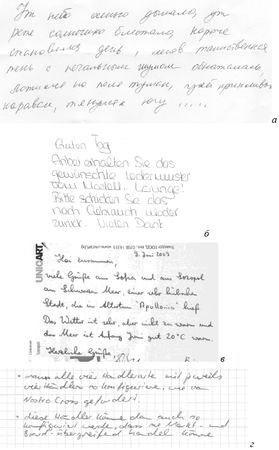 Уж небо осенью дышало, уж
реже солнышко блистало, короче
становился день, лесов таинственная
тень с печальным шумом обнажалась,
ложился на поля туман, гусей крикливых
караван, тянулся к югу .....
а
Guten Tag
Anbei erhalten Sie das
gewünschte Ledermuster
vom Modell Lounge!
Bitte schicken Sie das
nach Gebrauch wieder
zurück. Vielen Dank
б
UNICART
9. Juni 2003
Hai zusammen,
viele Grüße aus Sofia und aus Sozopol
am Schwarzen Meer, einer sehr hübschen
Stadt, die im Altertum "Apollonia" hieß.
Das Wetter ist sehr, aber nicht zu warm und
das Meer ist Anfang Juni gut 20°C warm.
Herzliche Grüße
в
alle vier Händler jeweils
vier Händlern so konfigurieren, wie von
Nostro Cross gefordert.
diese Händler können dann auch so
konfiguriert werden, dass sie Markt- und
Board-übergreifend handeln können
г